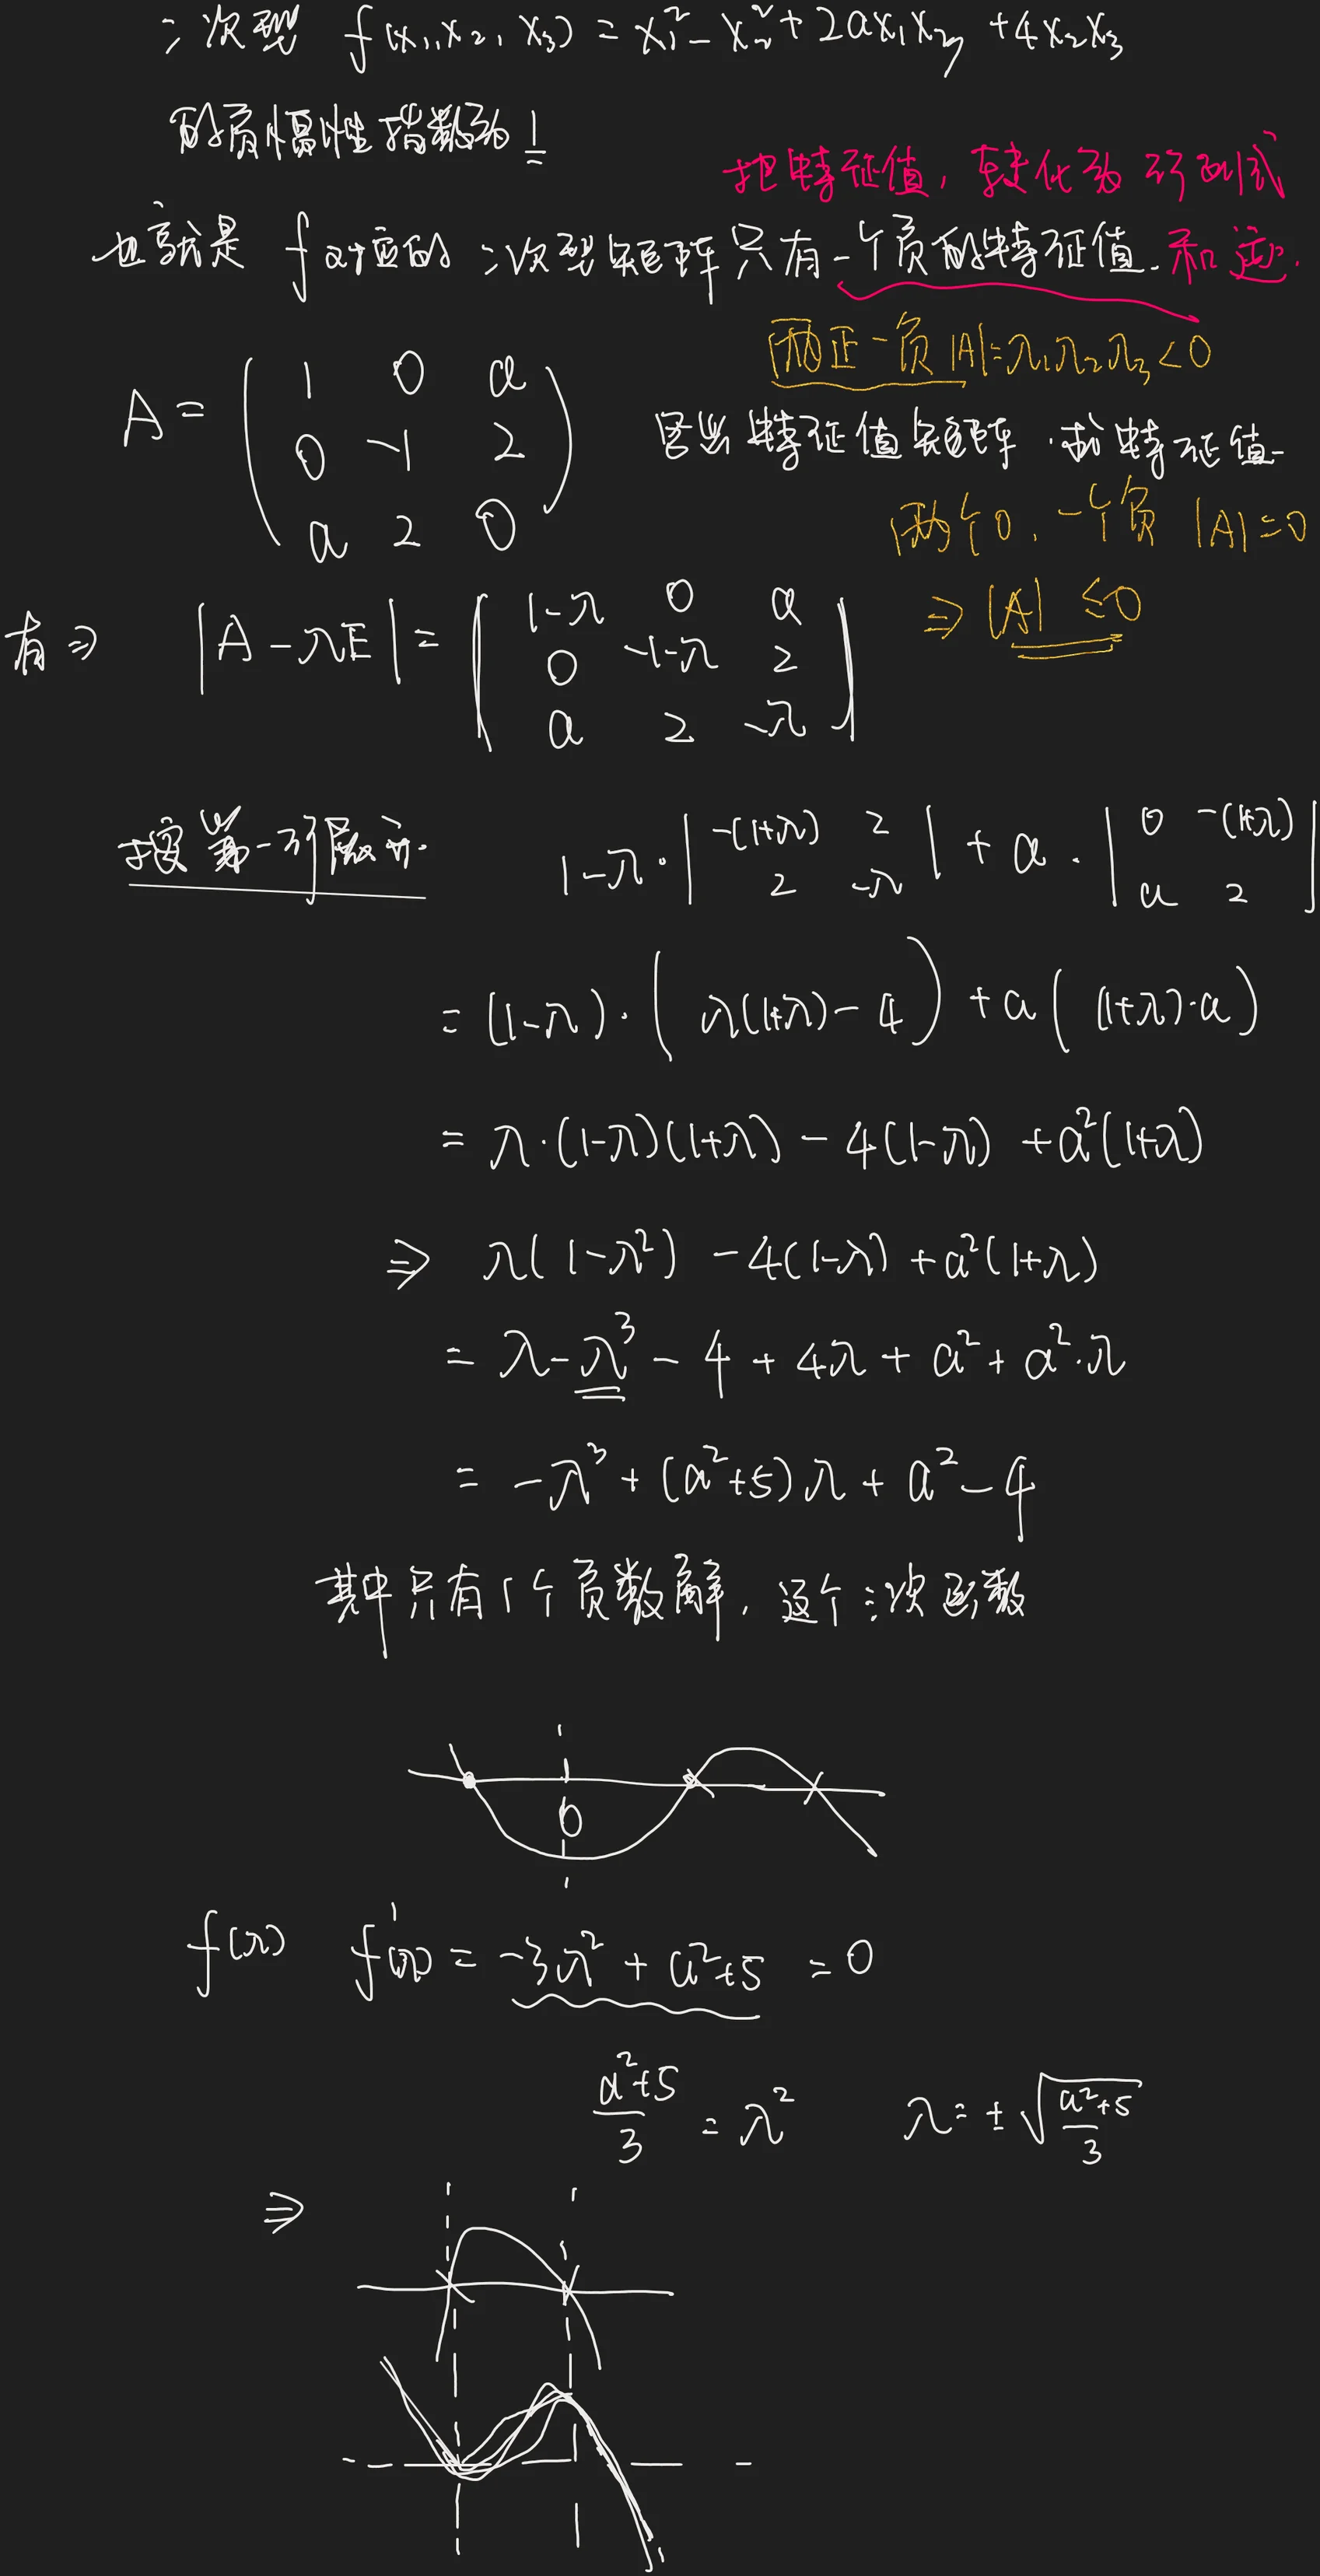 二次型 f(x₁,x₂,x₃) = x₁² - x₂² + 2ax₁x₃ + 4x₂x₃
的负惯性指数为1
把特征值，转化为行列式
也就是 f 对应的二次型矩阵只有一个负的特征值.和迹.
两正一负 |A|=λ₁λ₂λ₃<0
A = ( 1 0 a
0 -1 2
a 2 0 )
写出特征值矩阵.求特征值
两个0,一个负 |A|=0
⇒ |A| ≤0
有⇒ |A-λE| = | 1-λ 0 a
0 -1-λ 2
a 2 -λ |
按第一行展开. 1-λ·| -(1+λ) 2
2 -λ | + a·| 0 -(1+λ)
a 2 |
= (1-λ)·( λ(1+λ)-4 ) + a( (1+λ)·a )
= λ·(1-λ)(1+λ) - 4(1-λ) + a²(1+λ)
⇒ λ(1-λ²) - 4(1-λ) + a²(1+λ)
= λ-λ³ - 4 + 4λ + a² + a²·λ
= -λ³ + (a²+5)λ + a² - 4
其中只有1个负数解,这个三次函数
0
f(λ) f'(λ) = -3λ² + a²+5 = 0
(a²+5)/3 = λ² λ = ±√((a²+5)/3)
⇒